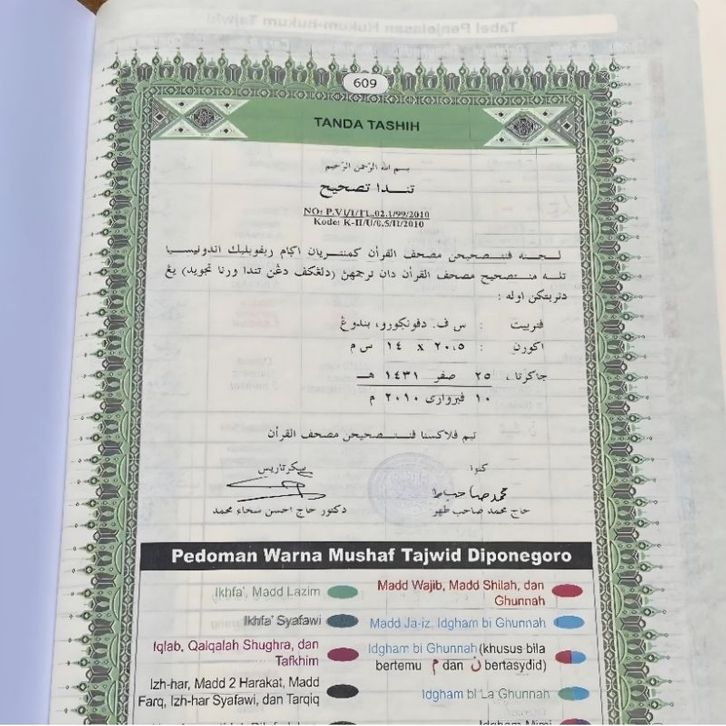 609
TANDA TASHIH
بسم الله الرّحمن الرّحيم
تندا تصحيح
NO: P.VI/1/TL.02.1/99/2010
Kode: K-II/U/0.5/II/2010
لجنه فنتصحيحن مصحف القرأن كمنتريان اݢام ريفوبليك اندونيسيا
تله منتصحيح مصحف القرأن دان ترجمهن (دلڠكف دڠن تندا ورنا تجويد) يڠ
دتربتكن اوله :
فنربيت : س ف. دفونݢورو، بندوڠ
اكورن : ٢٠،٥ x ١٤ س م
جاكرتا، ٢٥ صفر ١٤٣١ هـ
١٠ فبرواری ٢٠١٠ م
تيم فلاكسنا فنتصحيحن مصحف القرأن
كتوا
سكرتاريس
حاج محمد صاحب طهر
دكتور حاج احسن سخاء محمد
Pedoman Warna Mushaf Tajwid Diponegoro
Ikhfa', Madd Lazim
Madd Wajib, Madd Shilah, dan
Ghunnah
Ikhfa' Syafawi
Madd Ja-iz, Idgham bi Ghunnah
Iqlab, Qalqalah Shughra, dan
Tafkhim
Idgham bi Ghunnah (khusus bila
bertemu م dan ن bertasydid)
Izh-har, Madd 2 Harakat, Madd
Farq, Izh-har Syafawi, dan Tarqiq
Idgham bi La Ghunnah
Idgham Mimi